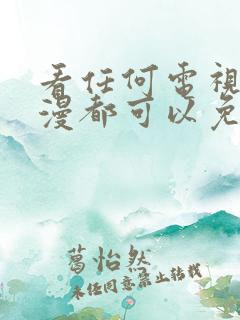 看任何電視
漫都可以免
葛怡然
未经同意禁止转载